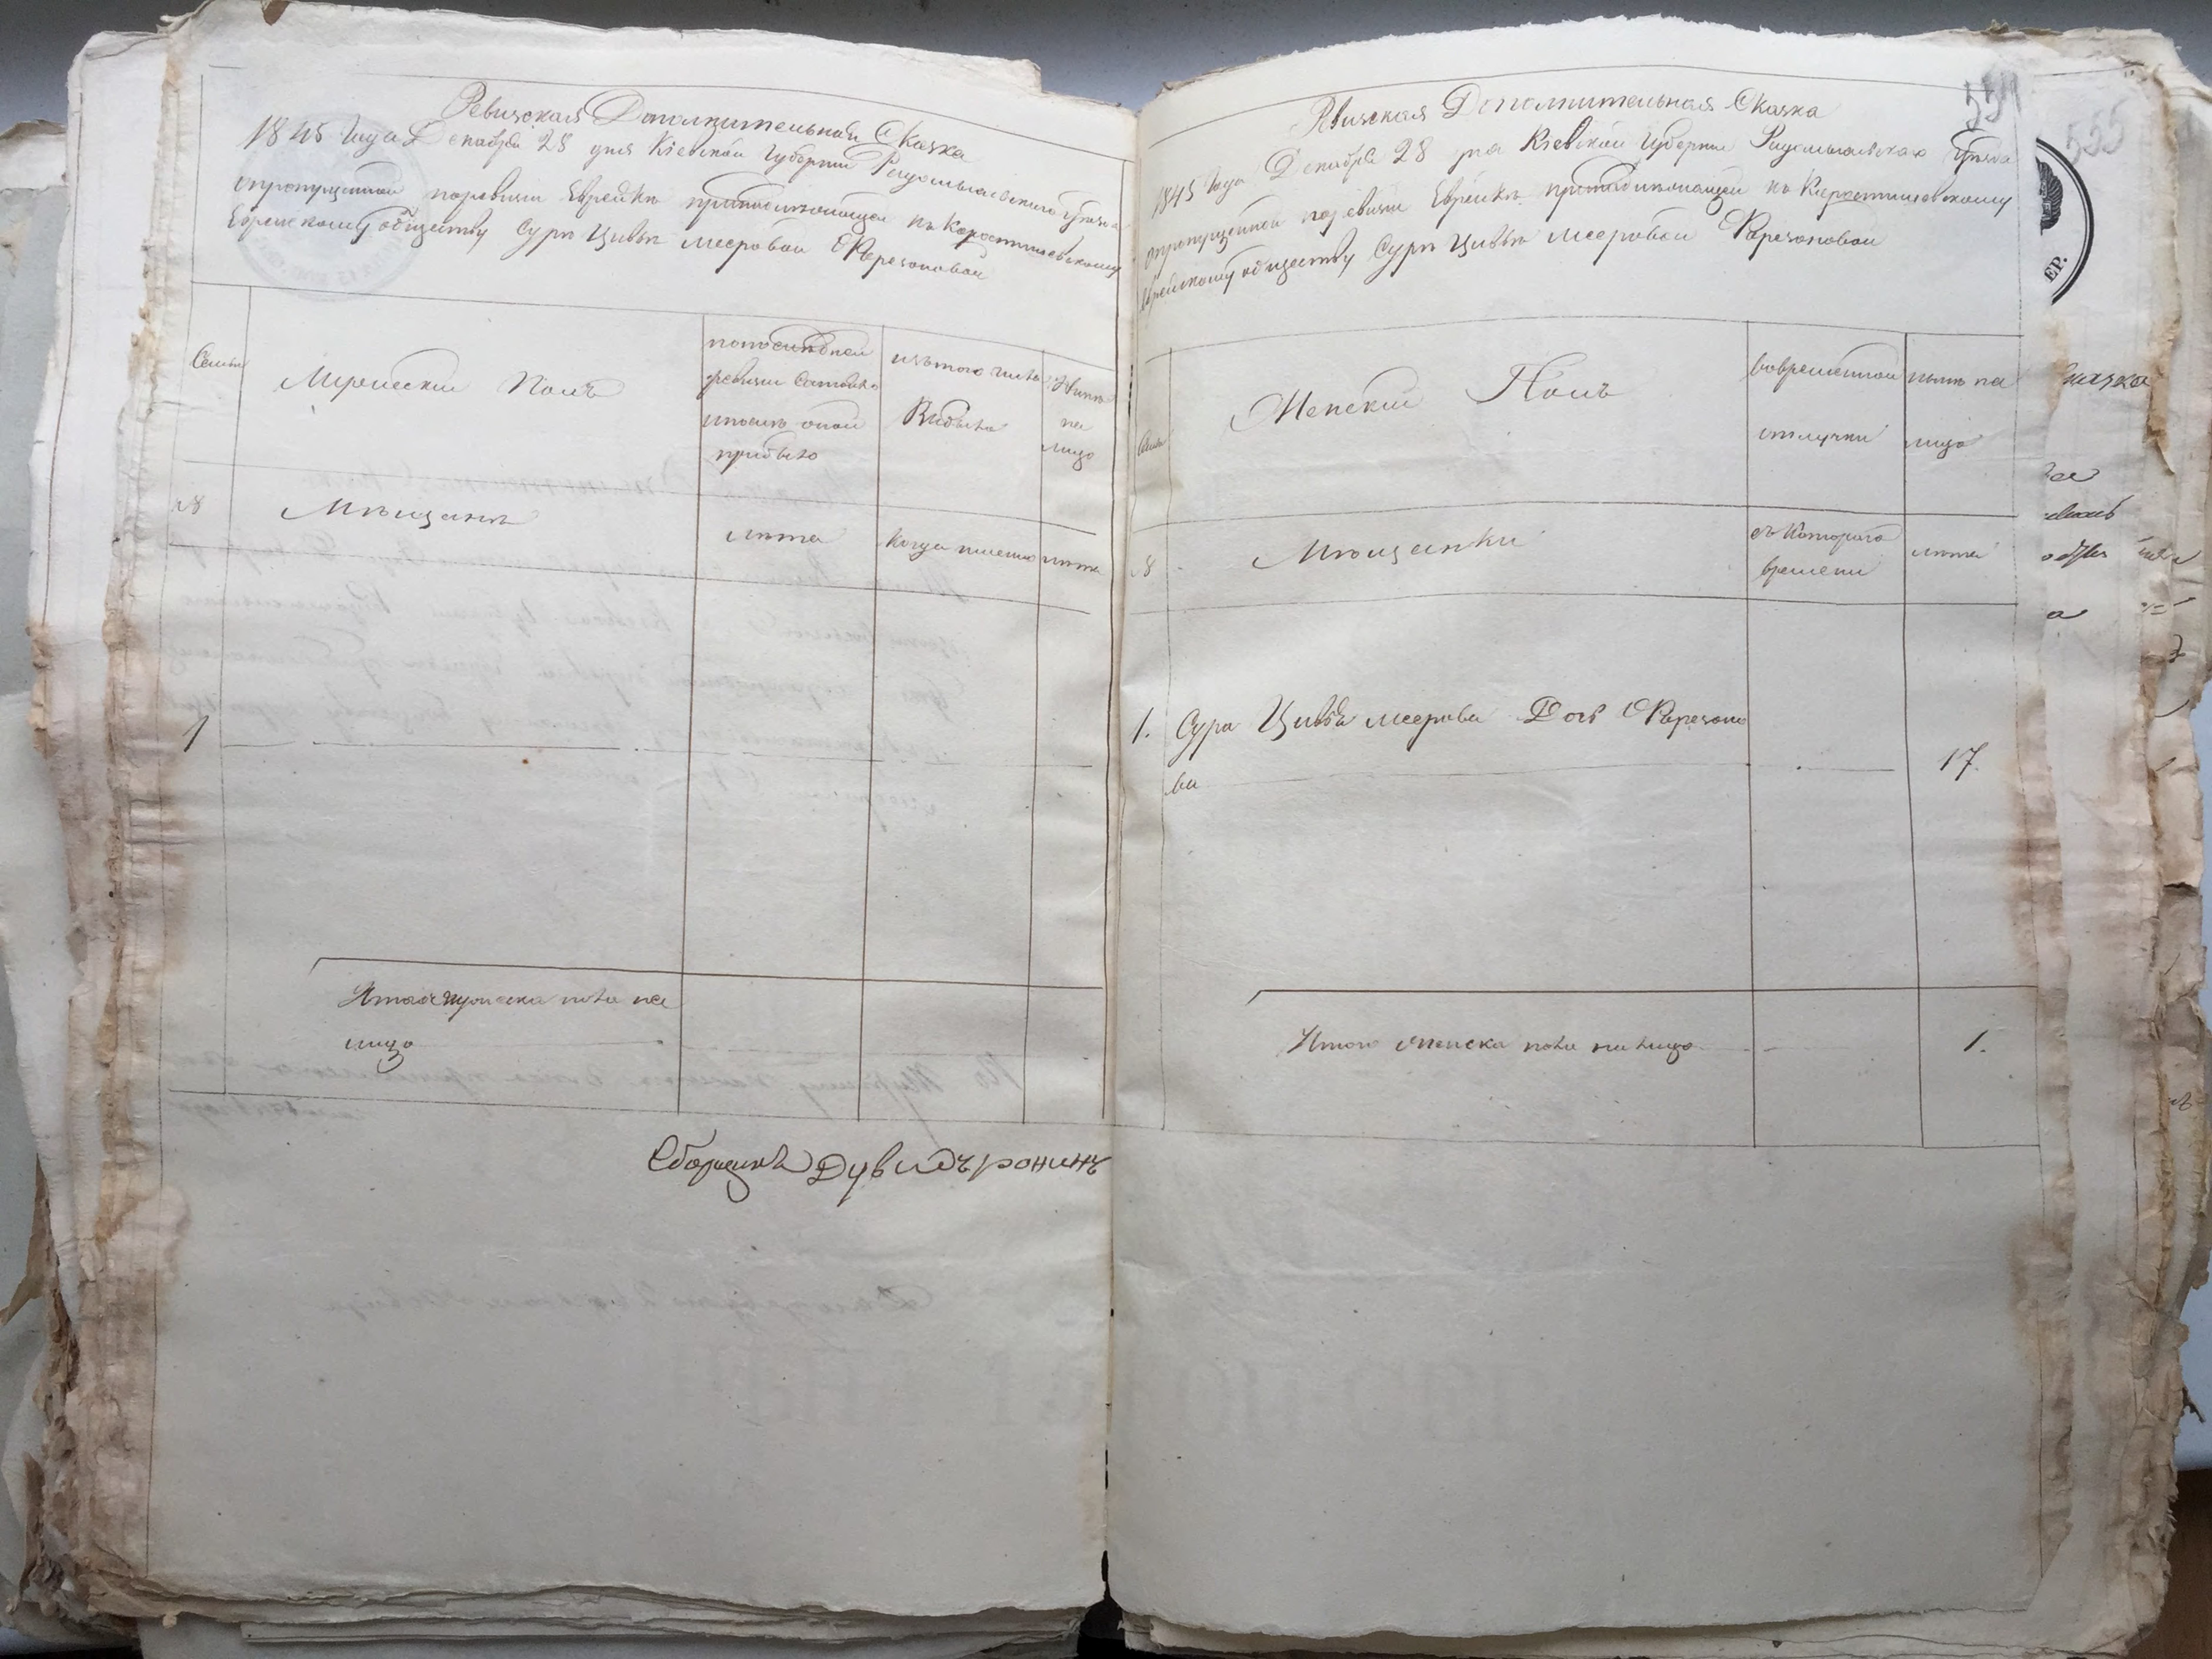 Ревизская Дополнительная Сказка
1845 Года Декабря 28 дня Кіевской Губерніи Радомысльского Уезда
опропущенной поревизіи Еврейкѣ принадлежащей къ Коростишевскому
Еврейскому обществу Сурѣ Цивьѣ Мееровой
Семьи
Мужескій Полъ
попоследней
ревизіи Состояло
ипослѣ оной
прибыло
изътого числа
Выбыло
Нынѣ
на
лицо
№
Мѣщанъ
лѣта
Когда именно
лѣта
1
Итого мужеска пола на
лицо
Сборщикъ Дувидъ Ронинъ
Ревизская Дополнительная Сказка
1845 Года Декабря 28 дня Кіевской Губерніи Радомысльскаго Уезда
опропущенной поревизіи Еврейкѣ принадлежащей къ Коростишевскому
Еврейскому обществу Сурѣ Цивьѣ Мееровой
Семьи
Женскій Полъ
вовременной
отлучки
нынѣ на
лицо
№
Мѣщанки
съ Котораго
времени
лѣта
1. Сура Цивья Меерова Дочь
ва
17.
Итого женска пола на лицо
1.
554
555
ЕР.